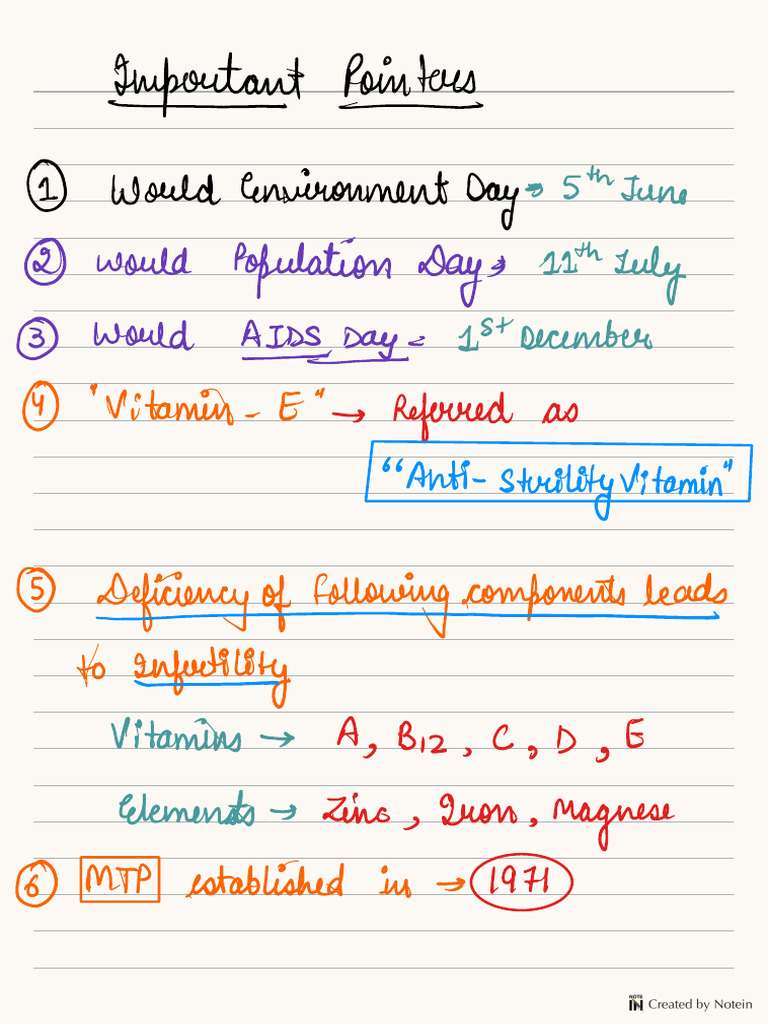 Important Pointers
① World Environment Day → 5th June
② World Population Day → 11th July
③ World AIDS Day = 1st December
④ "Vitamin - E" → Referred as
"Anti-Sterility Vitamin"
⑤ Deficiency of following components leads
to Infertility
Vitamins → A, B12, C, D, E
Elements → Zinc, Iron, Magnese
⑥ MTP established in → 1971
NOTE IN Created by Notein